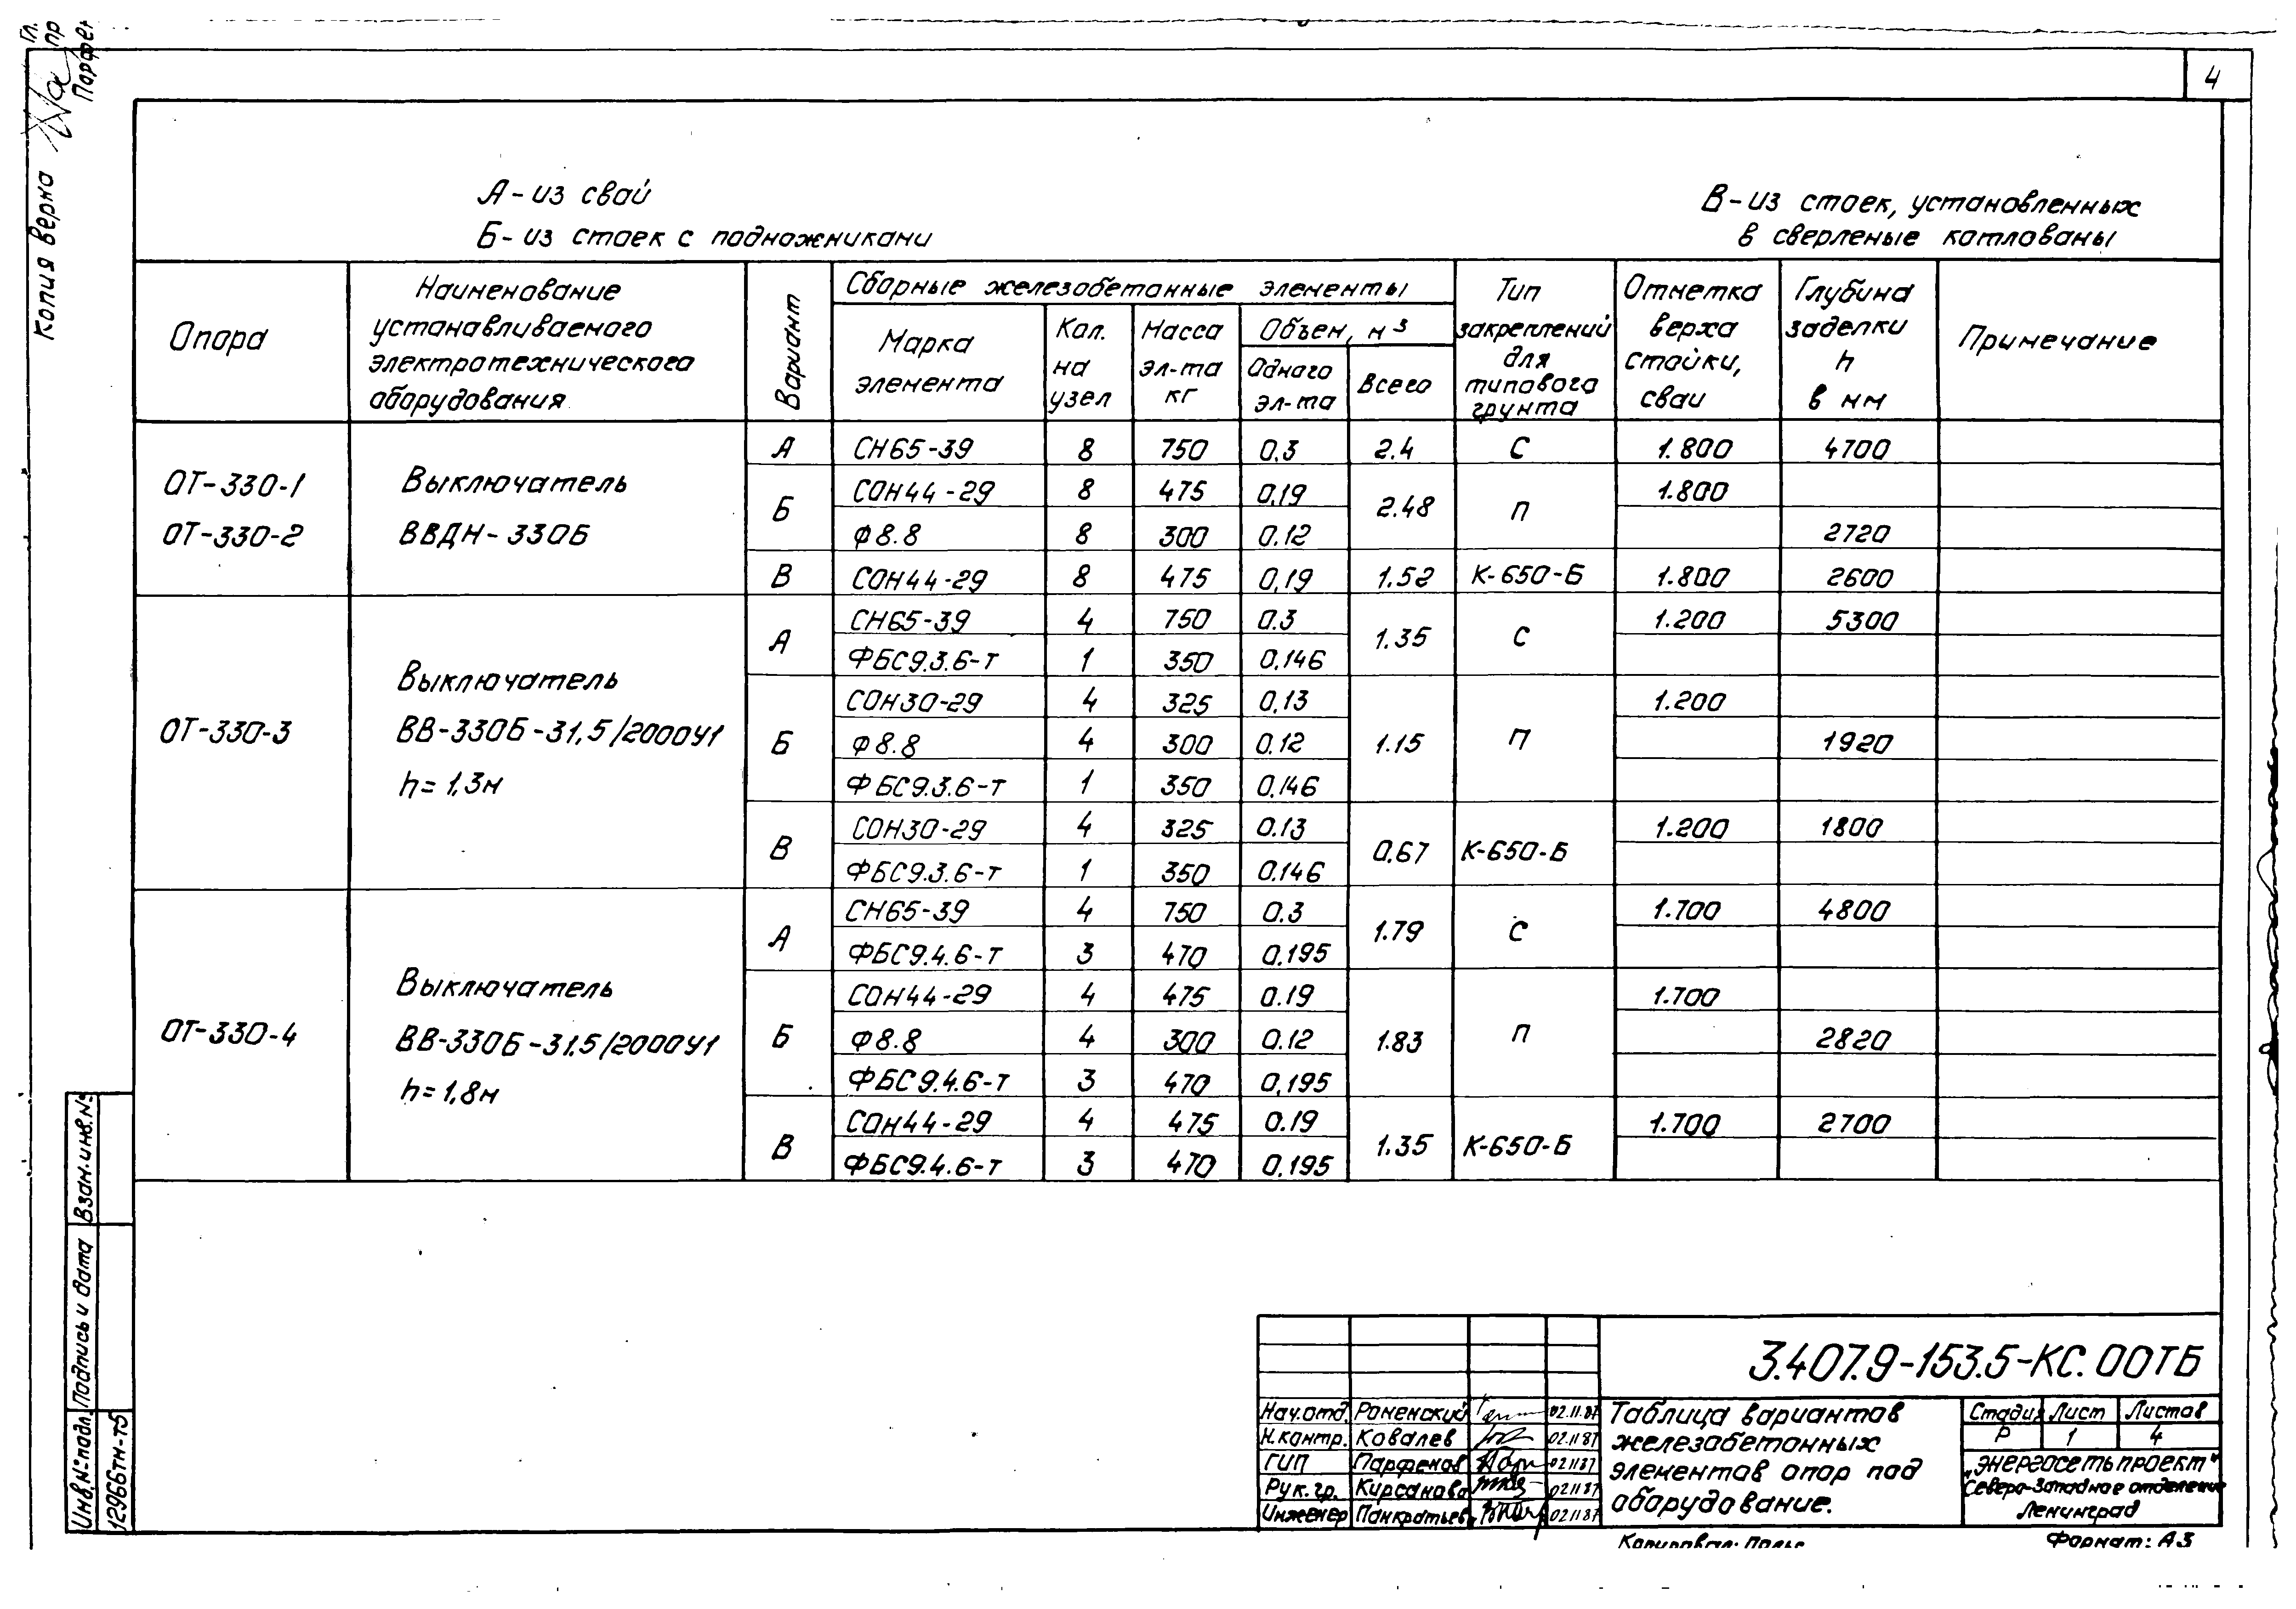 4
Копия верна
Гл.
пр
Парфен
А - из свай
Б - из стоек с подножниками
В - из стоек, установленных
в сверленые котлованы
Опора
Наименование
устанавливаемого
электротехнического
оборудования
Вариант
Сборные железобетонные элементы
Марка
элемента
Кол.
на
узел
Масса
эл-та
кг
Объем, м³
Одного
эл-та
Всего
Тип
закреплений
для
типового
грунта
Отметка
верха
стойки,
сваи
Глубина
заделки
h
в мм
Примечание
ОТ-330-1
ОТ-330-2
Выключатель
ВВДН-330Б
А СН65-39 8 750 0,3 2.4 С 1.800 4700
Б СОН44-29 8 475 0,19 2.48 П 1.800
Ф8.8 8 300 0.12 2720
В СОН44-29 8 475 0,19 1.52 К-650-Б 1.800 2600
ОТ-330-3
Выключатель
ВВ-330Б-31,5/2000У1
h=1,3м
А СН65-39 4 750 0.3 1.35 С 1.200 5300
ФБС9.3.6-т 1 350 0,146
Б СОН30-29 4 325 0,13 1.15 П 1.200
Ф8.8 4 300 0.12 1920
ФБС9.3.6-т 1 350 0,146
В СОН30-29 4 325 0.13 0,67 К-650-Б 1.200 1800
ФБС9.3.6-т 1 350 0.146
ОТ-330-4
Выключатель
ВВ-330Б-31.5/2000У1
h=1,8м
А СН65-39 4 750 0.3 1.79 С 1.700 4800
ФБС9.4.6-т 3 470 0.195
Б СОН44-29 4 475 0.19 1.83 П 1.700
Ф8.8 4 300 0.12 2820
ФБС9.4.6-т 3 470 0,195
В СОН44-29 4 475 0.19 1.35 К-650-Б 1.700 2700
ФБС9.4.6-т 3 470 0,195
Взам.инв.№
Подпись и дата
Инв.№ подл.
12966тм-т5
3.407.9-153.5-КС.00ТБ
Нач.отд. Роменский 02.11.87
Н.контр. Ковалев 02.11.87
ГИП Парфенов 02.11.87
Рук.гр. Кирсанова 02.11.87
Инженер Панкратьев 02.11.87
Таблица вариантов
железобетонных
элементов опор под
оборудование.
Стадия Лист Листов
Р 1 4
„Энергосетьпроект"
Северо-Западное отделение
Ленинград
Копировал:
Формат: А3